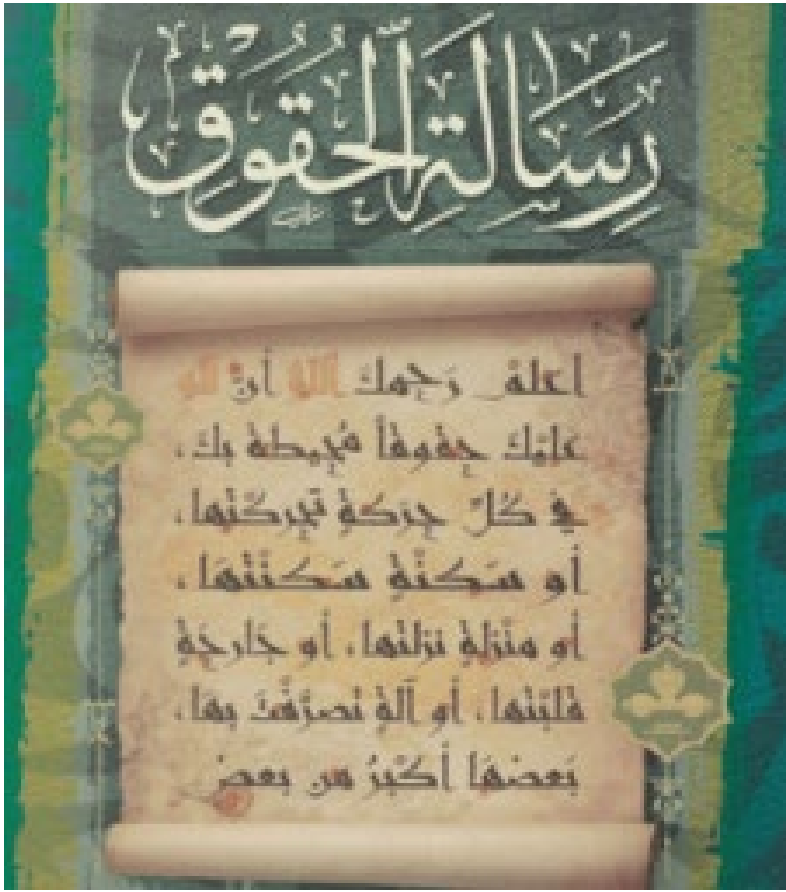 رِسَالَةُ الحُقُوقِ
اعلم رَحِمك الله أنّ لله
عَلَيْك حقوقاً مُحِيطة بك،
في كُلّ حركةٍ تحركتها،
أو سَكنَةٍ سَكنتَها،
أو منزلةٍ نزلتها، أو جَارحَةٍ
قلبتها، أو آلةٍ تصرَّفْتَ بها،
بَعضهَا أكبَرُ من بعض